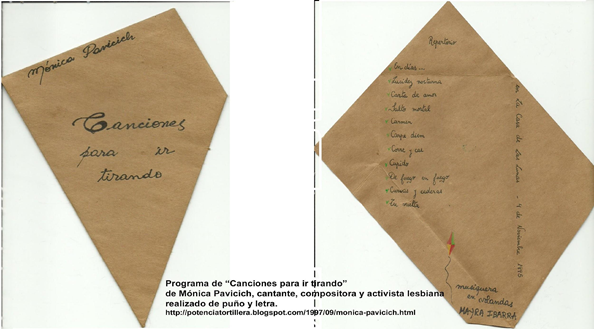 Mónica Pavicich
Canciones
para ir
tirando
Repertorio
Lucidez nocturna
Carta de amor
Salto mortal
Carmen
Carpe diem
Corre y cae
Cupido
De fuego en fuego
en La Casa de las Lunas - 4 de Noviembre
musiquera
en volandas
MAYRA IBARRA
Programa de “Canciones para ir tirando”
de Mónica Pavicich, cantante, compositora y activista lesbiana
realizado de puño y letra.
http://potenciatortillera.blogspot.com/1997/09/monica-pavicich.html